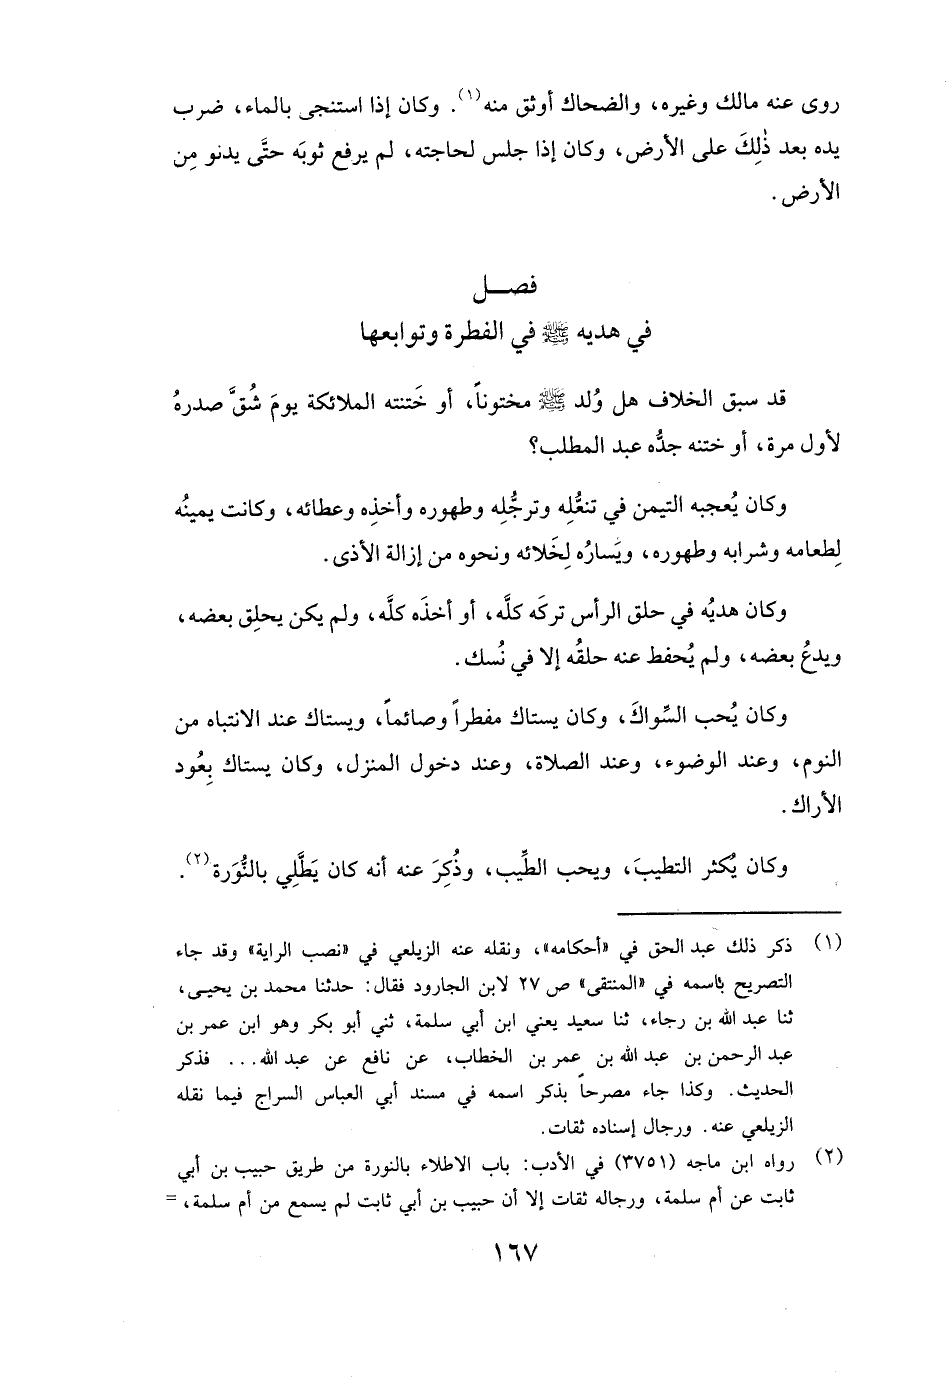 روى عنه مالك وغيره، والضحاك أوثق منه(١). وكان إذا استنجى بالماء، ضرب
يده بعد ذٰلِكَ على الأرض، وكان إذا جلس لحاجته، لم يرفع ثوبَه حتَّى يدنو مِن
الأرض.
فصــل
في هديه ﷺ في الفطرة وتوابعها
قد سبق الخلاف هل وُلد ﷺ مختوناً، أو خَتنته الملائكة يومَ شُقَّ صدرهُ
لأول مرة، أو ختنه جدُّه عبد المطلب؟
وكان يُعجبه التيمن في تنعُّلِه وترجُّلِه وطهوره وأخذِه وعطائه، وكانت يمينُه
لِطعامه وشرابه وطهوره، ويَسارُه لِخَلائه ونحوه من إزالة الأذى.
وكان هديُه في حلق الرأس تركَه كلَّه، أو أخذَه كلَّه، ولم يكن يحلِق بعضه،
ويدعُ بعضه، ولم يُحفط عنه حلقُه إلا في نُسك.
وكان يُحب السِّواكَ، وكان يستاك مفطراً وصائماً، ويستاك عند الانتباه من
النوم، وعند الوضوء، وعند الصلاة، وعند دخول المنزل، وكان يستاك بِعُود
الأراك.
وكان يُكثر التطيبَ، ويحب الطِّيب، وذُكِرَ عنه أنه كان يَطَّلِي بالنُّوَرة(٢).
(١) ذكر ذلك عبد الحق في «أحكامه»، ونقله عنه الزيلعي في «نصب الراية» وقد جاء
التصريح باسمه في «المنتقى» ص ٢٧ لابن الجارود فقال: حدثنا محمد بن يحيى،
ثنا عبد الله بن رجاء، ثنا سعيد يعني ابن أبي سلمة، ثني أبو بكر وهو ابن عمر بن
عبد الرحمن بن عبد الله بن عمر بن الخطاب، عن نافع عن عبد الله... فذكر
الحديث. وكذا جاء مصرحاً بذكر اسمه في مسند أبي العباس السراج فيما نقله
الزيلعي عنه. ورجال إسناده ثقات.
(٢) رواه ابن ماجه (٣٧٥١) في الأدب: باب الاطلاء بالنورة من طريق حبيب بن أبي
ثابت عن أم سلمة، ورجاله ثقات إلا أن حبيب بن أبي ثابت لم يسمع من أم سلمة، =
١٦٧